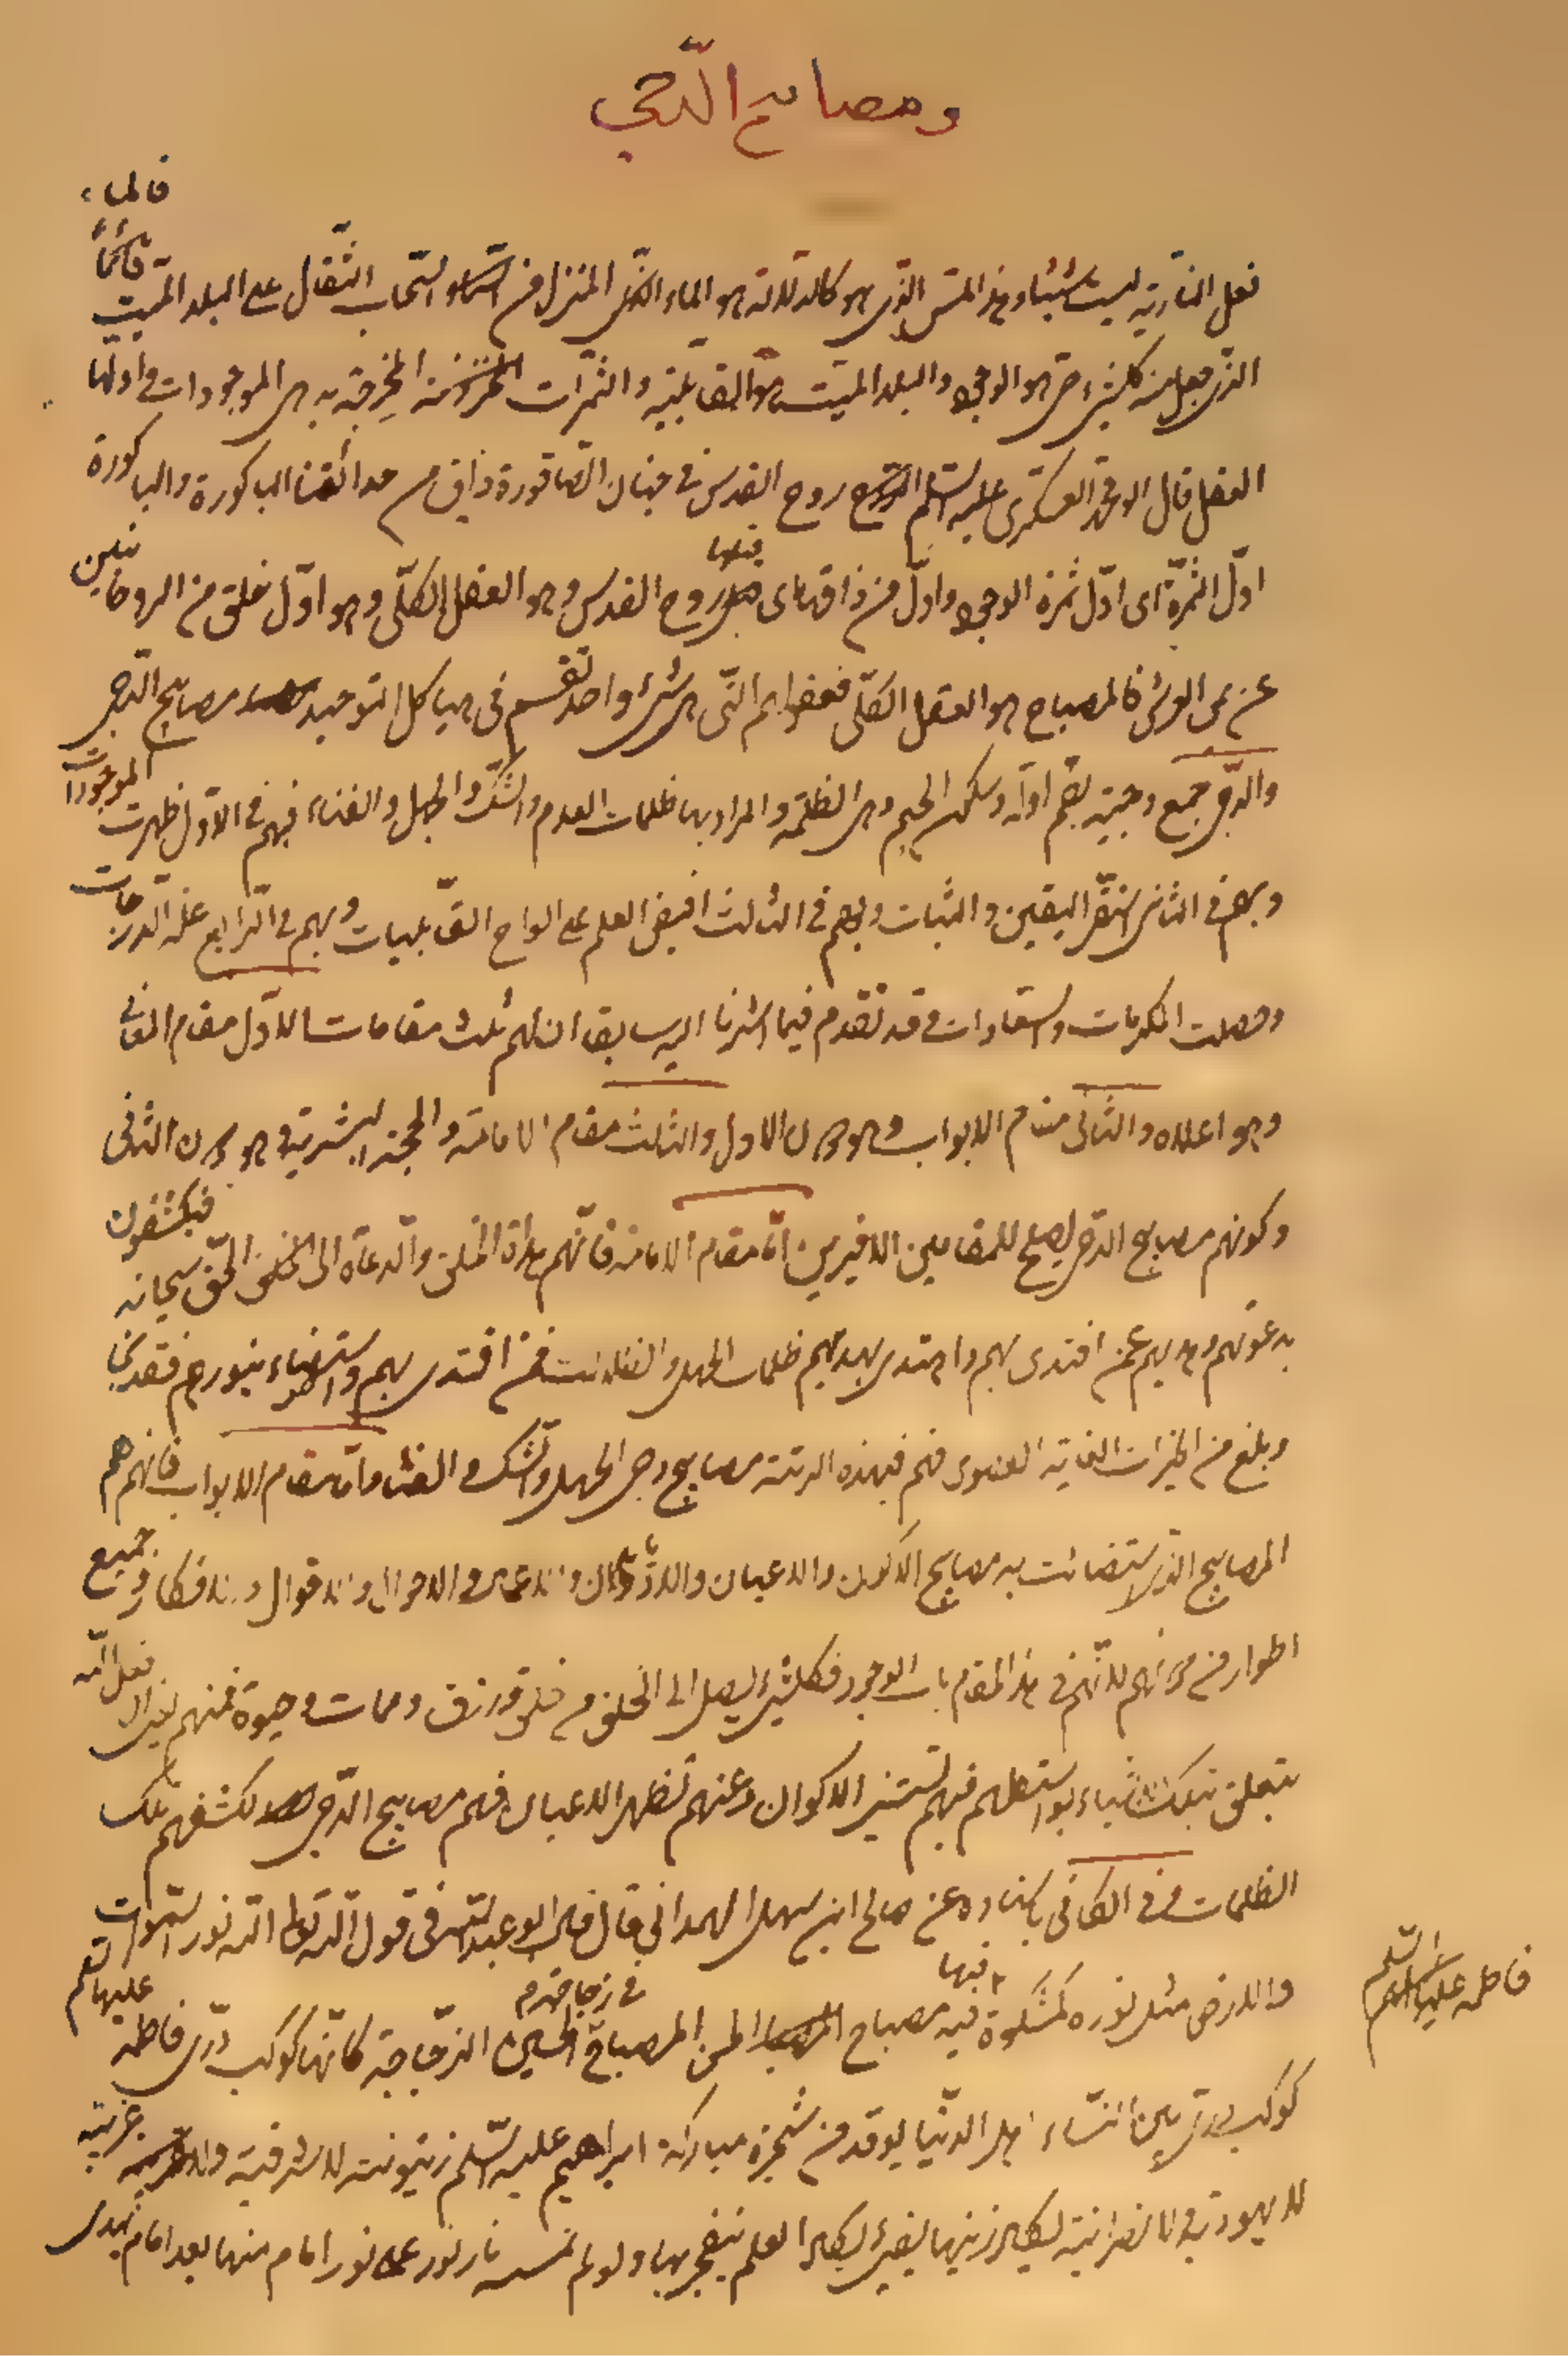 ومصابيح الدّجى
فالماء
فعل النار به ليست شيئا وهذا المس الذى هو كالدلالة هو الماء الذى المنزل من السماء والسّحاب الثّقال على البلد الميّت قائماً
الذى جعل منه كلشىء حى هو الوجود والبلد الميّت هو القابلية والثمرات المخرجة به هى الموجودات و اولها
العقل قال ابو محمد العسكرى عليه السّلم روح القدس فى جنان الصّاقورة ذاق من حدائقنا الباكورة والباكورة
اوّل الثمرة اى اوّل ثمرة الوجود واوّل من ذاقها اى قبلها روح القدس وهو العقل الكلّى وهو اوّل خلق من الروحانيين
عن يمين العرش فالمصباح هو العقل الكلّى فعقولهم التّى هى شىء واحد تقسم فى هياكل التوحيد مصابيح الدّجى
والدّجى جمع دجية بضم اوّله وسكون الجيم وهى الظلمة والمراد بها ظلمات العدم والشّك والجهل والفناء فبهم فى الاوّل ظهرت الموجودات
وبهم فى الثانى استقرّ اليقين والثبات وبهم فى الثالث افيض العلم على الواح القابليات وبهم فى الرّابع علت الدّرجات
وحصلت المكرمات والسعادات وقد تقدم فيما اشرنا اليه سابقا ان لهم ثلث مقامات الاوّل مقام المعانى
وهو اعلاه والثانى مقام الابواب وهو دون الاول والثالث مقام الامامة والحجة البشرية وهو دون الثانى
وكونهم مصابيح الدّجى يصلح للمقامين الاخيرين امّا مقام الامامة فانّهم هداة الخلق والدّعاة الى الحق سبحانه فيكشفون
بدعوتهم وهديهم عمّن اقتدى بهم واهتدى بهديهم ظلمات الجهل والضلالات فمن اقتدى بهم واستضاء بنورهم فقد نجى
وبلغ من الخيرات الغاية القصوى فهم فى هذه الرتبة مصابيح دجى الجهل والشّك و الغى وامّا مقام الابواب فانهم هم
المصابيح الذى استضائت به مصابيح الاكوان والاعيان والاذهان والاعمال والاحوال والاقوال والافكار وجميع
اطوار من دونهم لانّهم فى هذا المقام باب الوجود فكلشىء يصل الى الخلق من خلق ورزق وممات وحيوة فمنهم لان فعل الله
يتعلق بتلك الاشياء بواستطهم فبهم تستنير الاكوان وعنهم تظهر الاعيان فهم مصابيح الدّجى لكشفهم تلك
الظلمات وفى الكافى باسناده عن صالح ابن سهل الهمدانى قال قال ابو عبد الله فى قول الله تعالى الله نور السّموات
والارض مثل نوره كمشكوة فيها مصباح الحسن المصباح فى زجاجة الحسين الزّجاجة كانّها كوكب درّى فاطمة عليها السلم
فاطمة عليها السّلم
كوكب درّى بين نساء اهل الدّنيا يوقد من شجرة مباركة ابراهيم عليه السّلم زيتونة لا شرقية ولا غربية
لا يهودية ولا نصرانية يكاد زيتها يضىء يكاد العلم ينفجر بها ولو لم تمسسه نار نور على نور امام منها بعد امام يهدى